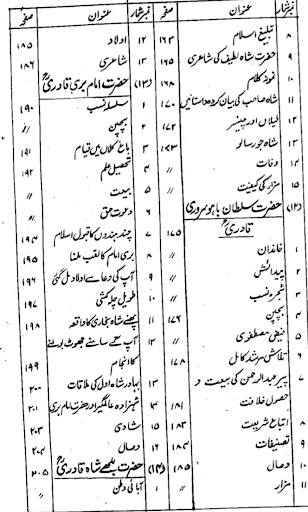 نمبر شمار عنوان صفحہ
۸ تبلیغ اسلام ۱۶۳
۹ حضرت شاہ لطیف کی شاعری ۱۶۵
۱۰ نمونہ کلام ۱۶۸
۱۱ شاہ صاحب کی بیان کردہ داستانیں ۱۷۰
۱۲ لیلاں اور چنیسر ۱۷۲
۱۳ شاہ جو رسالو ۱۷۳
۱۴ وفات
۱۵ مزار کی کیفیت 〃
(۱۲) حضرت سلطان باہو سروری
قادریؒ ۱۷۵
۱ خاندان
۲ پیدائش
۳ شجرہ نسب 〃
۴ بچپن ۱۷۶
۵ فیض مصطفوی 〃
۶ تلاش مرشد کامل ۱۷۸
۷ پیر عبدالرحمن کی بیعت و
حصول خلافت ۱۸۱
۸ اتباع شریعت ۱۸۳
۹ تصنیفات ۱۸۴
۱۰ وصال ۱۸۵
۱۱ مزار 〃
نمبر شمار عنوان صفحہ
۱۲ اولاد ۱۸۵
۱۳ شاعری ۱۸۶
(۱۳) حضرت امام بری قادریؒ
۱ سلسلہ نسب ۱۹۰
۲ بچپن 〃
۳ باغ کلاں میں قیام ۱۹۱
۴ تحصیل علم ۱۹۲
۵ بیعت 〃
۶ دعوت حق 〃
۷ چند ہندوں کا قبول اسلام ۱۹۴
۸ بری امام کا لقب ملنا ۱۹۵
۹ آپ کی دعا سے اولاد مل گئی ۱۹۶
۱۰ طویل چلہ کشی ۱۹۷
۱۱ شاہ بخاری کا واقعہ ۱۹۸
۱۲ آپ کے سامنے جھوٹ بولنے
کا انجام ۱۹۹
۱۳ بہادر شاہ اول کی ملاقات ۲۰۰
۱۴ شہزادہ عالمگیر اور حضرت امام بری ۲۰۱
۱۵ شادی ۲۰۳
۱۶ وصال ۲۰۴
(۱۴) حضرت بلھے شاہ قادریؒ ۲۰۵
۱ آبائی وطن 〃